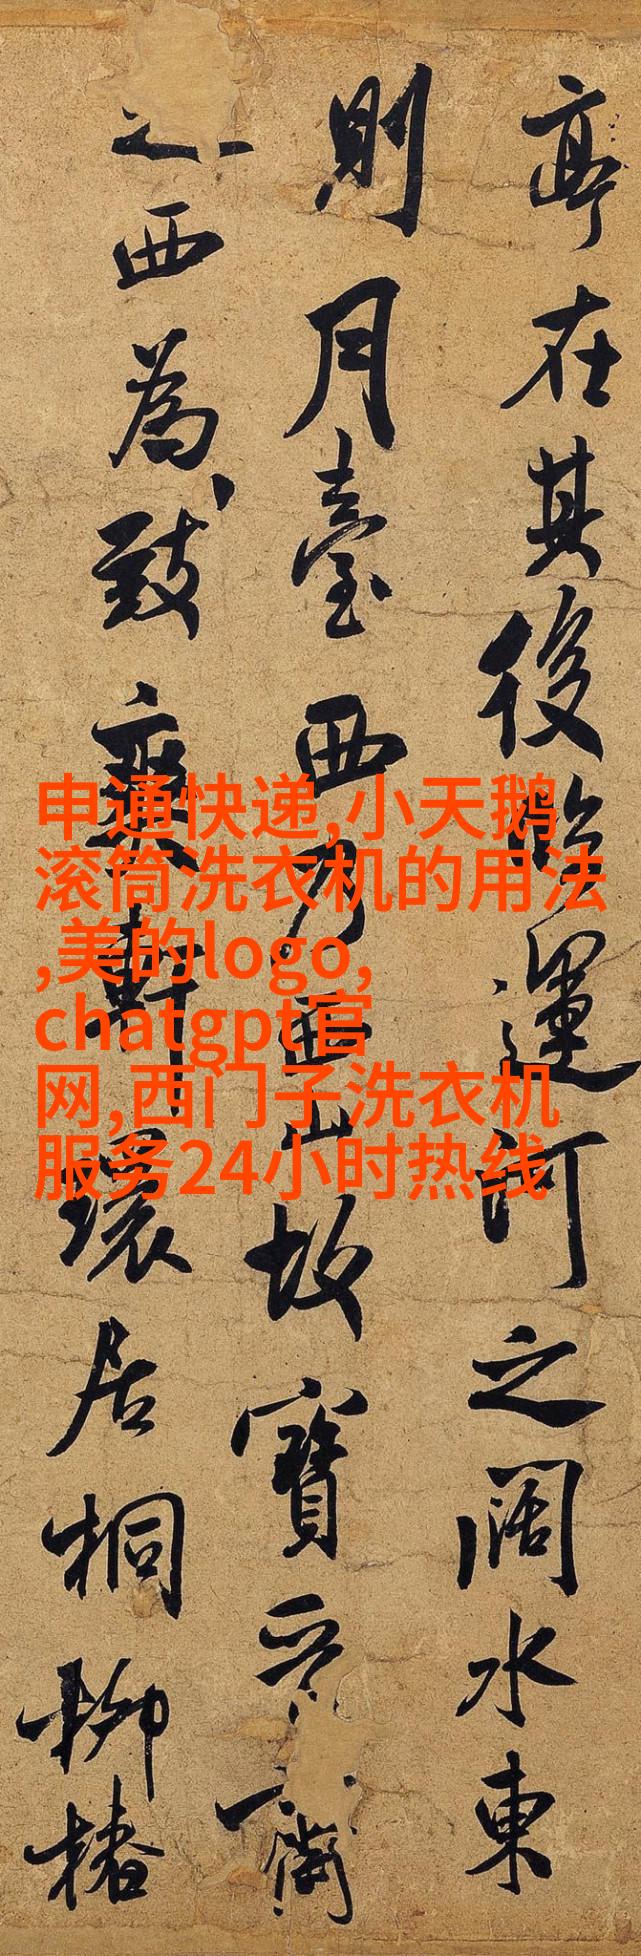 亭在其後臨運河之闊水東
則月臺西乃西山故寶晉齋
之西為致爽軒環居桐柳椿
申通快递,小天鹅
滚筒洗衣机的用法
,美的logo,
chatgpt官
网,西门子洗衣机
服务24小时热线